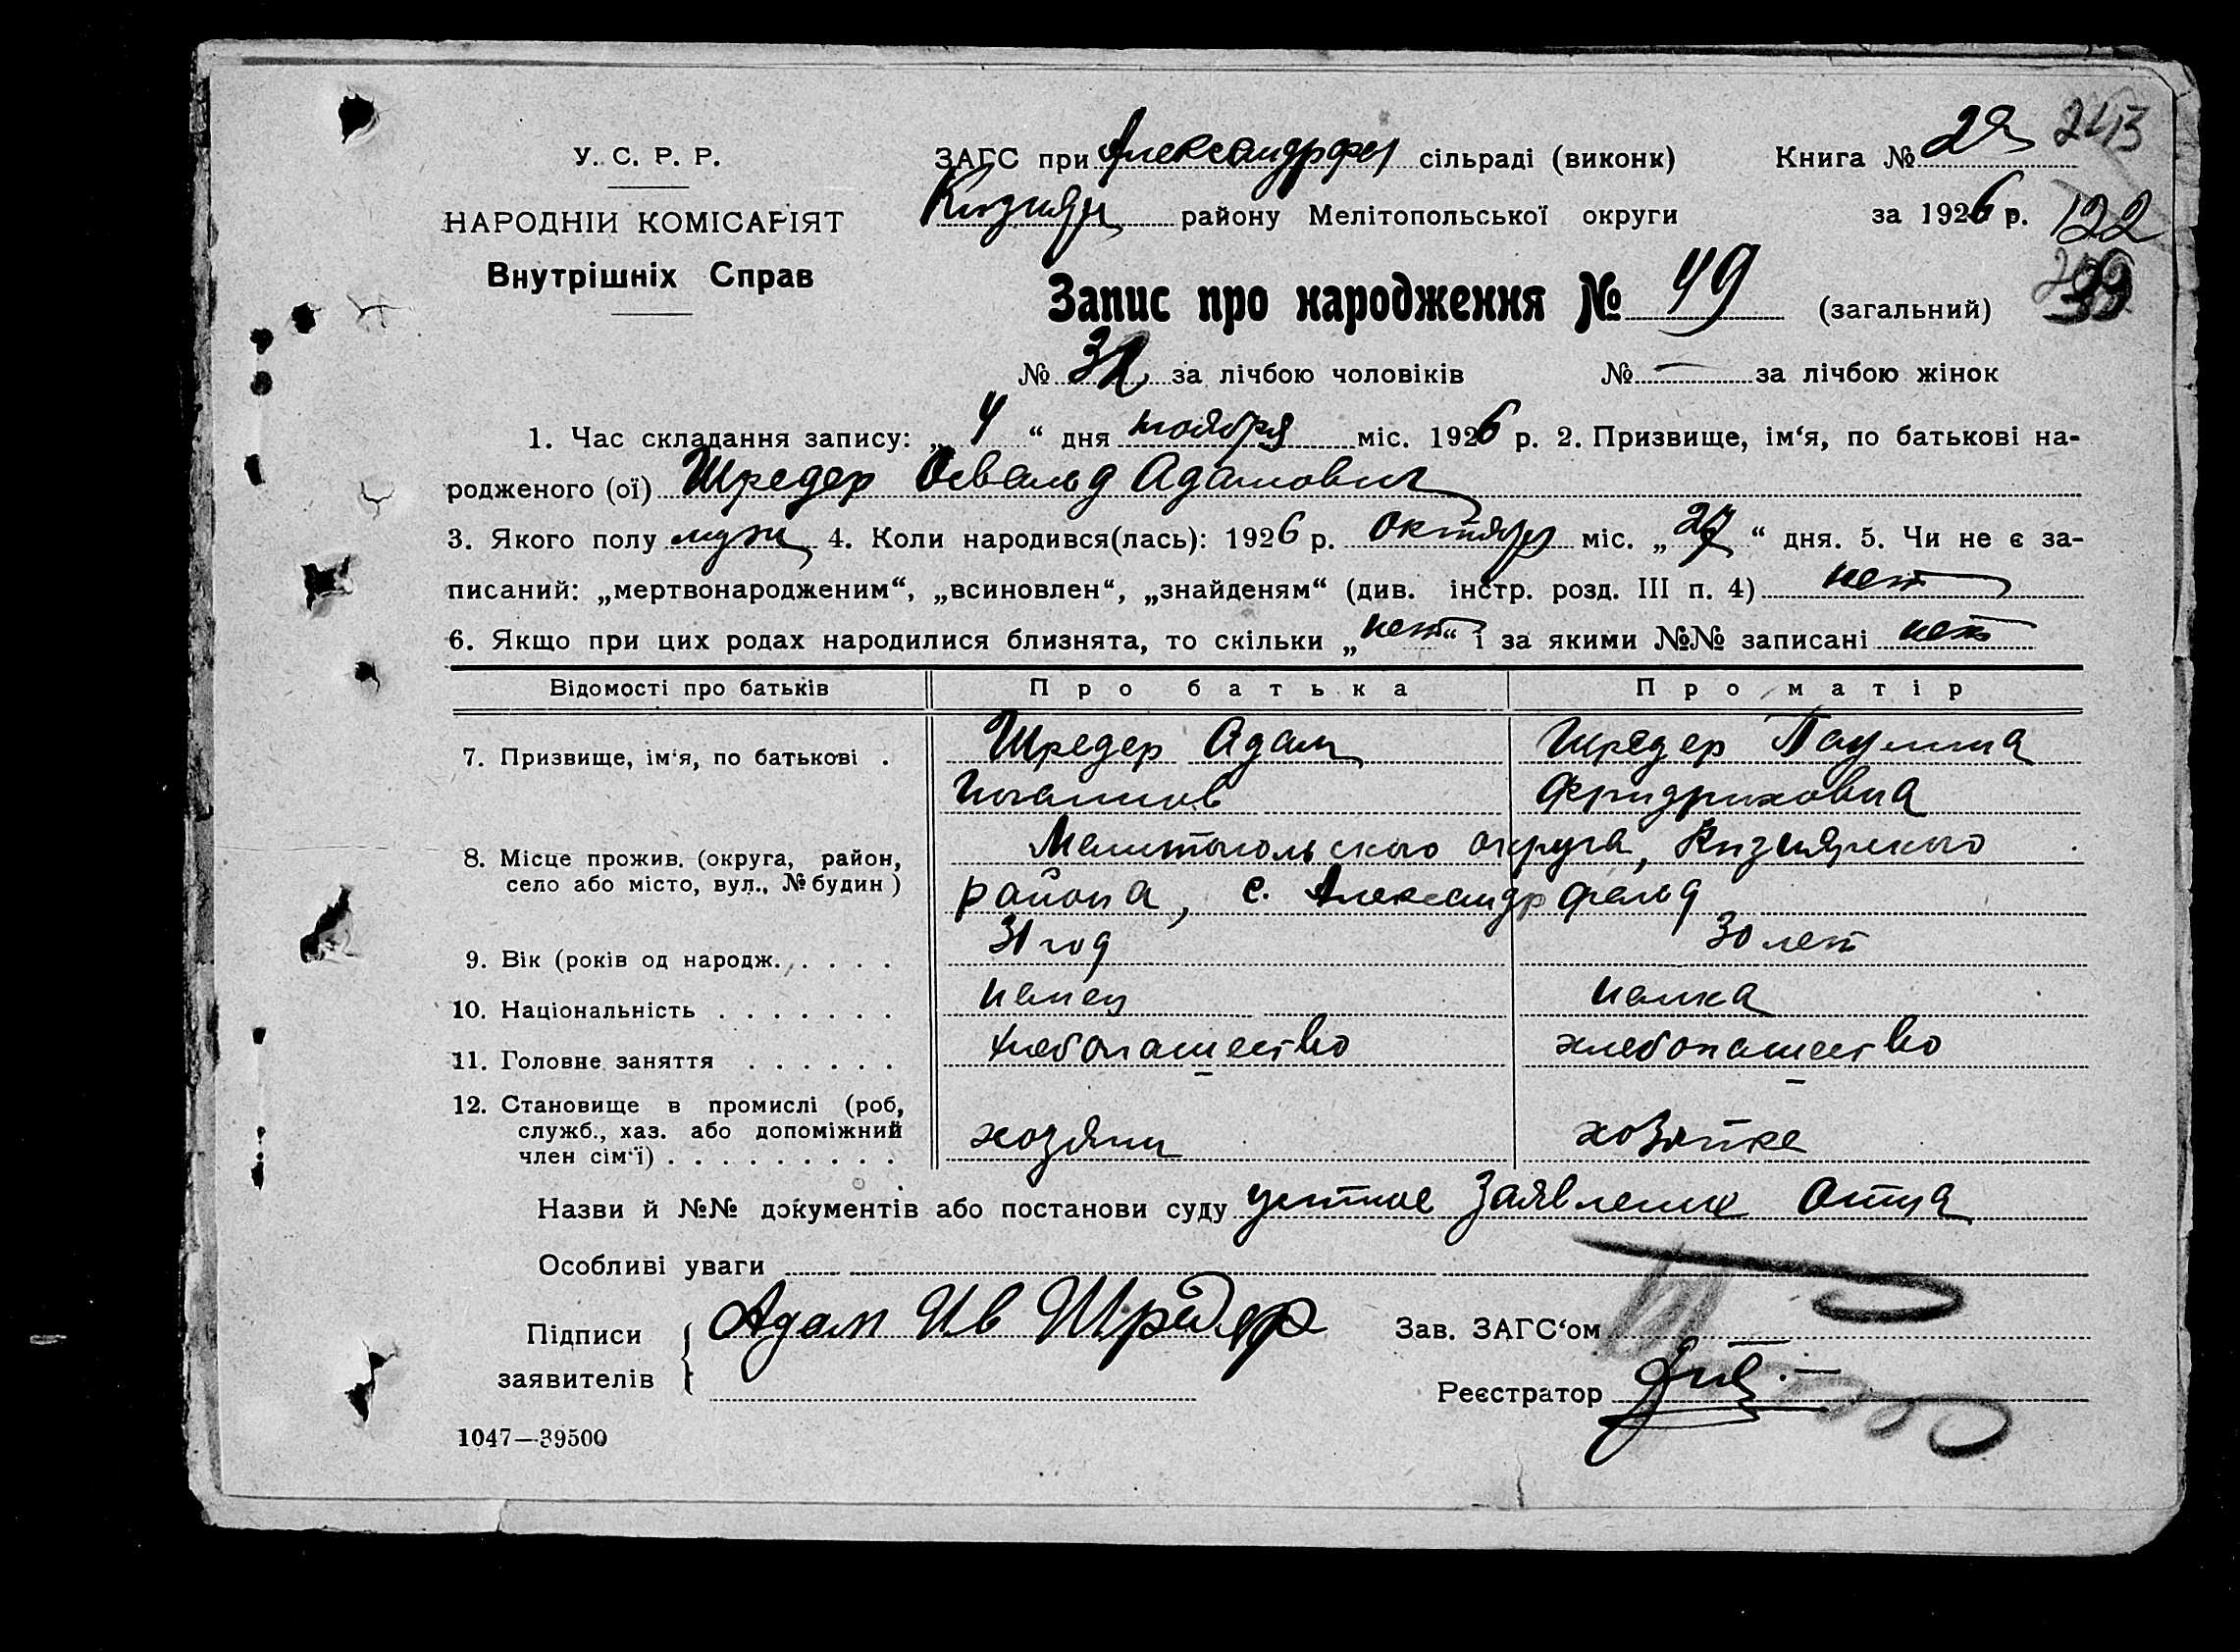 У. С. Р. Р.
НАРОДНІЙ КОМІСАРІЯТ
Внутрішніх Справ
ЗАГС при Александрфел сільраді (виконк) Книга № 2а 243
Кизияр району Мелітопольської округи за 1926 р. 122
Запис про народження № 49 (загальний) 39
№ 32 за лічбою чоловіків № — за лічбою жінок
1. Час складання запису: „ 4 “ дня ноября міс. 1926 р. 2. Призвище, ім‘я, по батькові на-
родженого (ої) Шредер Освальд Адамович
3. Якого полу муж 4. Коли народився(лась): 1926 р. Октябр міс. „ 27 “ дня. 5. Чи не є за-
писаний: „мертвонародженим“, „всиновлен“, „знайденям“ (див. інстр. розд. III п. 4) нет
6. Якщо при цих родах народилися близнята, то скільки „ нет “ і за якими №№ записані нет
Відомості про батьків Про батька Про матір
7. Призвище, ім‘я, по батькові . Шредер Адам Шредер Паулина
Иоганнов Фридриховна
8. Місце прожив. (округа, район, Мелитопольского округа, Кизиярского
село або місто, вул., № будин) района, с. Александрфельд
9. Вік (років од народж. . . . . 31 год 30 лет
10. Національність . . . . . . . немец немка
11. Головне заняття . . . . . . хлебопашество хлебопашество
12. Становище в промислі (роб, – –
служб., хаз. або допоміжний хозяин хозяйка
член сім‘ї) . . . . . . . . .
Назви й №№ документів або постанови суду устное заявление отца
Особливі уваги
Підписи Адам Ив Шредер Зав. ЗАГС‘ом
заявителів Реєстратор
1047—39500